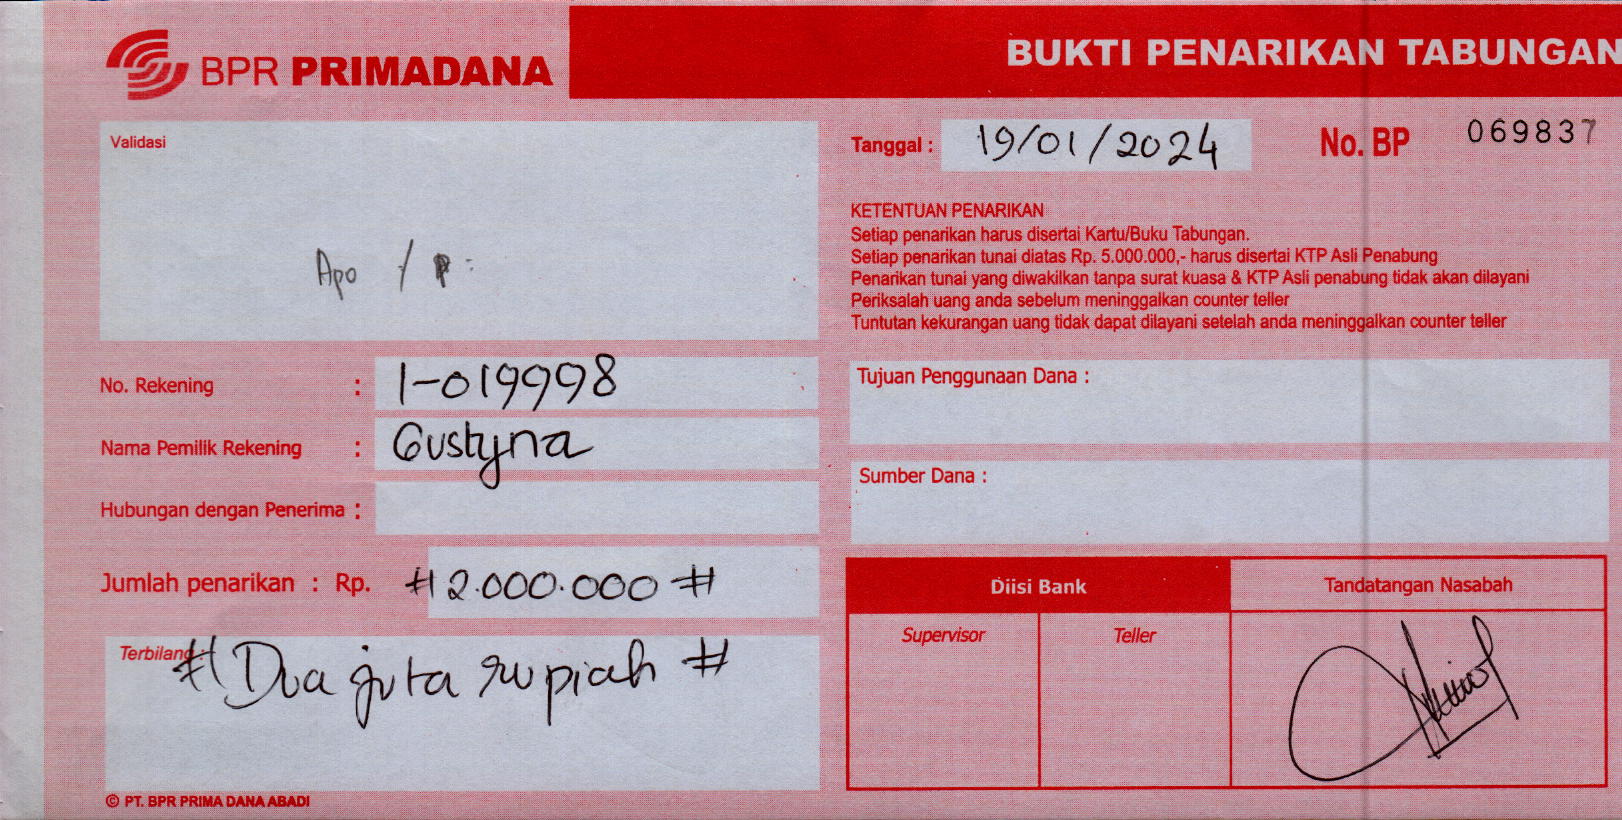 BPR PRIMADANA
BUKTI PENARIKAN TABUNGAN
Validasi
Apo /
Tanggal : 19/01/2024
No. BP 069837
KETENTUAN PENARIKAN
Setiap penarikan harus disertai Kartu/Buku Tabungan.
Setiap penarikan tunai diatas Rp. 5.000.000,- harus disertai KTP Asli Penabung
Penarikan tunai yang diwakilkan tanpa surat kuasa & KTP Asli penabung tidak akan dilayani
Periksalah uang anda sebelum meninggalkan counter teller
Tuntutan kekurangan uang tidak dapat dilayani setelah anda meninggalkan counter teller
No. Rekening : 1-019998
Nama Pemilik Rekening : Gustyna
Hubungan dengan Penerima :
Jumlah penarikan : Rp. # 2.000.000 #
Terbilang : # Dua juta rupiah #
Tujuan Penggunaan Dana :
Sumber Dana :
Diisi Bank
Tandatangan Nasabah
Supervisor
Teller
© PT. BPR PRIMA DANA ABADI